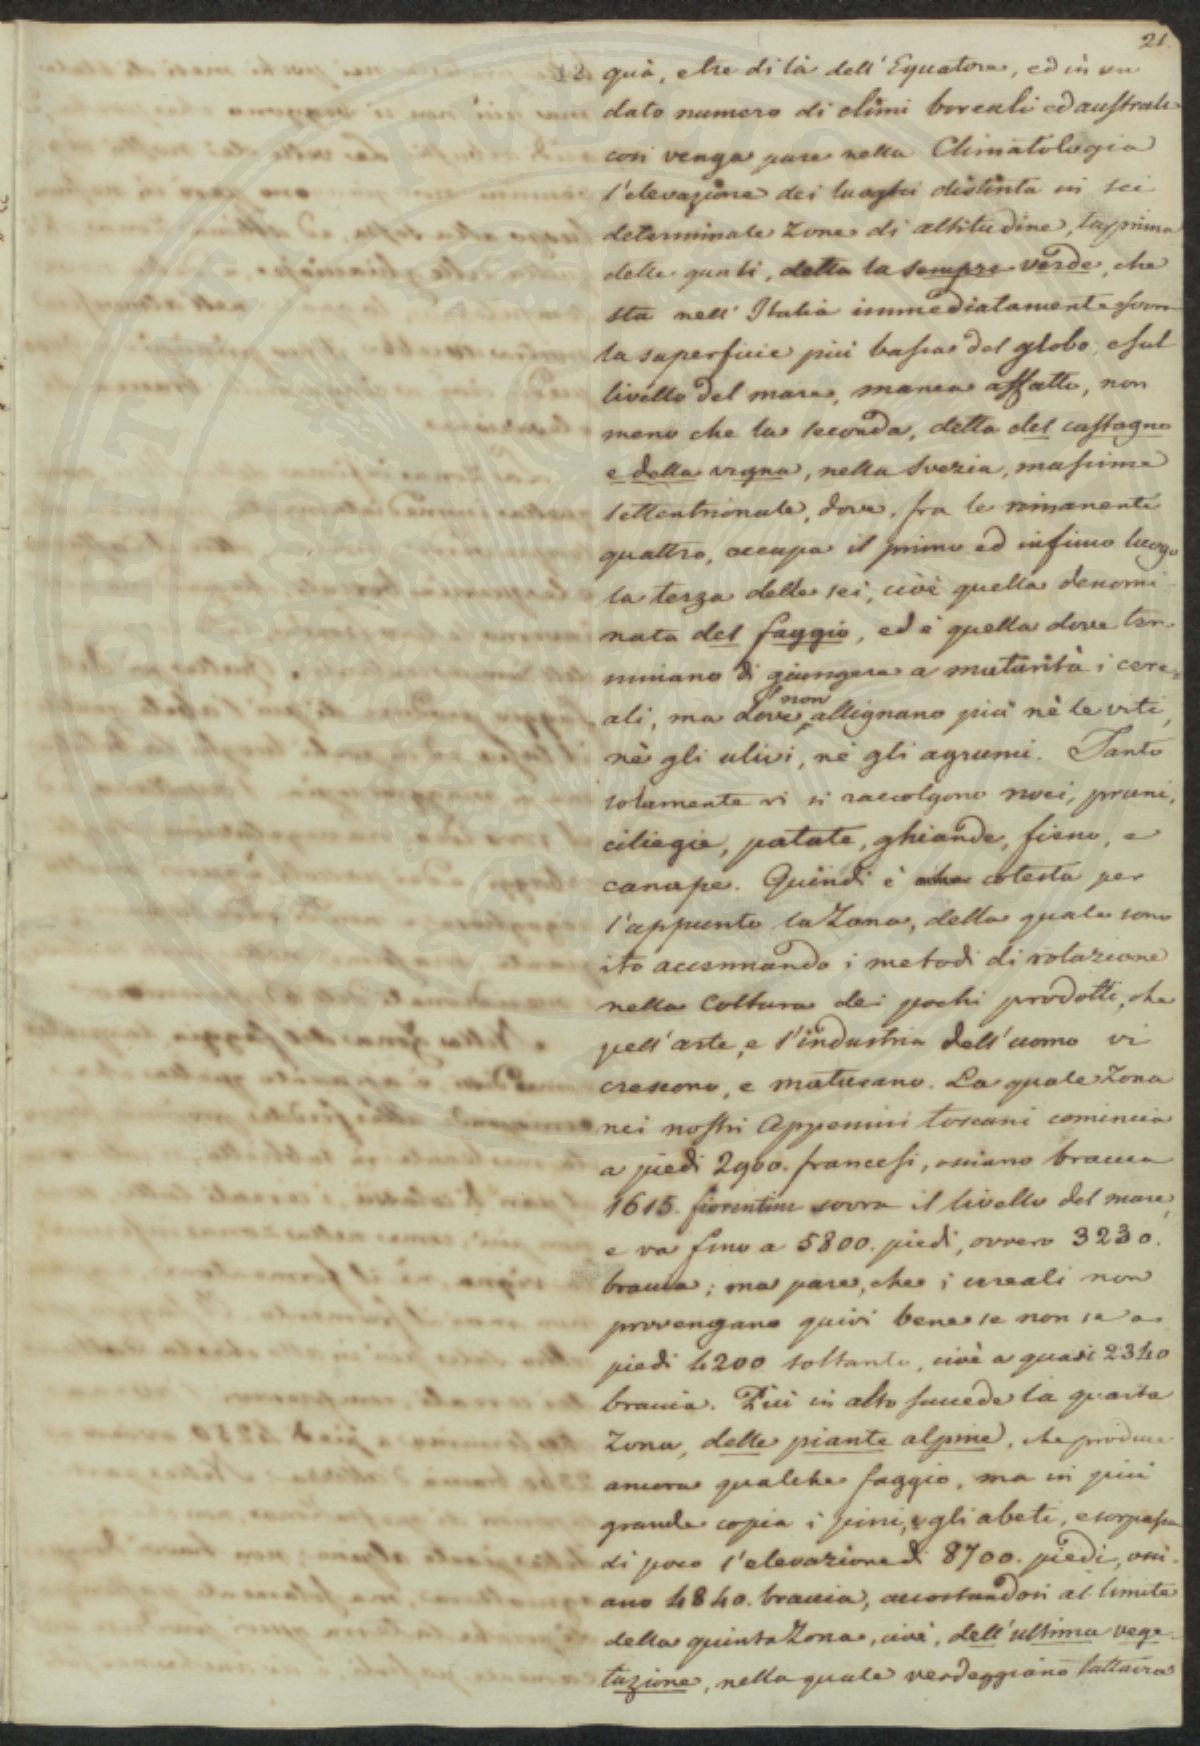 21.
quà, e tre di là dell' Equatore, ed in un
dato numero di climi boreali ed australi
così venga pure nella Climatologia
l'elevazione dei luoghi distinta in sei
determinate Zone di altitudine, la prima
delle quali, detta la sempre verde, che
sta nell' Italia immediatamente sovra
la superficie più bassa del globo, e sul
livello del mare, manca affatto, non
meno che la seconda, detta del castagno
e della vigna, nella Svezia, massime
settentrionale, dove, fra le rimanenti
quattro, occupa il primo ed infimo luogo
la terza delle sei, cioè quella denomi-
nata del faggio, ed è quella dove ter-
minano di giungere a maturità i cere-
ali, ma dove non allignano più nè le viti,
nè gli ulivi, nè gli agrumi. Tanto
solamente vi si raccolgono noci, pruni,
ciliegie, patate, ghiande, fieno, e
canape. Quindi è cotesta per
l'appunto la Zona, della quale sono
ito accennando i metodi di rotazione
nella Coltura dei pochi prodotti, che
pell' arte, e l'industria dell' uomo vi
crescono, e maturano. La quale Zona
nei nostri Appennini toscani comincia
a piedi 2900. francesi, ossiano braccia
1615. fiorentine sovra il livello del mare,
e va fino a 5800. piedi, ovvero 3230.
braccia; ma pare, che i cereali non
provengano quivi bene se non se a
piedi 4200 soltanto, cioè a quasi 2340
braccia. Più in alto succede la quarta
Zona, delle piante alpine, che produce
ancora qualche faggio, ma in più
grande copia i pini, e gli abeti, e sorpassa
di poco l'elevazione di 8700. piedi, ossi-
ano 4840. braccia, accostandosi al limite
della quinta Zona, cioè, dell' ultima vege-
tazione, nella quale verdeggiano tuttavia